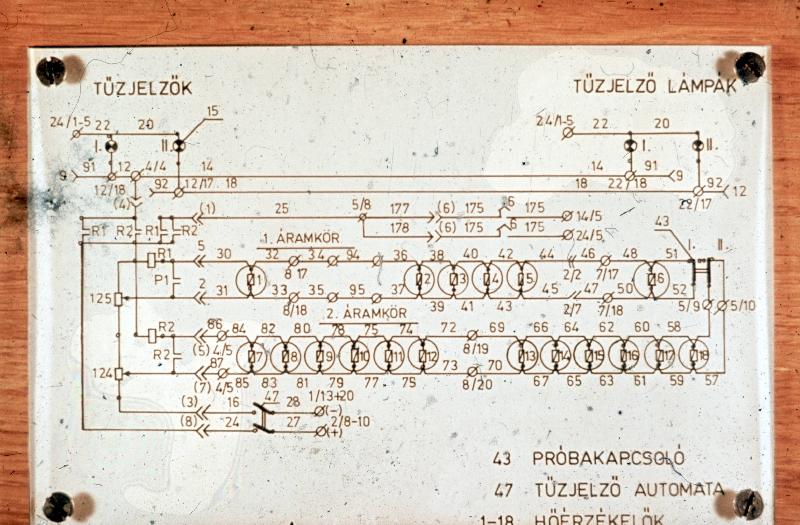 TŰZJELZŐK TŰZJELZŐ LÁMPÁK
15
24/1-5 22 20 24/1-5 22 20
I. II. I. II.
91 12 4/4 14 14 91 9
9
12/18 92 12/17 18 18 22/18 92 12
(4) 22/17
(1) 25 5/8 177 (6) 175 6 175 14/5
R1 R2 R1 R2 178 (6) 175 6 175 24/5 43
1. ÁRAMKÖR I. II.
R1 5 30 32 34 94 36 38 40 42 44 46 48 51
8 17 2/2 7/17
P1 1 2 3 4 5 6
125 2 31 33 35 95 37 39 41 43 45 47 50 52
8/18 2/7 7/18 5/9 5/10
2. ÁRAMKÖR
R2 86 84 82 80 78 75 74 72 69 66 64 62 60 58
(5) 4/5 8/19
R2 7 8 9 10 11 12 13 14 15 16 17 18
124 87
(7) 4/5 85 83 81 79 77 75 73 67 65 63 61 59 57
8/20
(3) 16 47 28 1/13+20 (-)
(8) 24 27 2/8-10 (+)
43 PRÓBAKAPCSOLÓ
47 TŰZJELZŐ AUTOMATA
1-18 HŐÉRZÉKELŐK